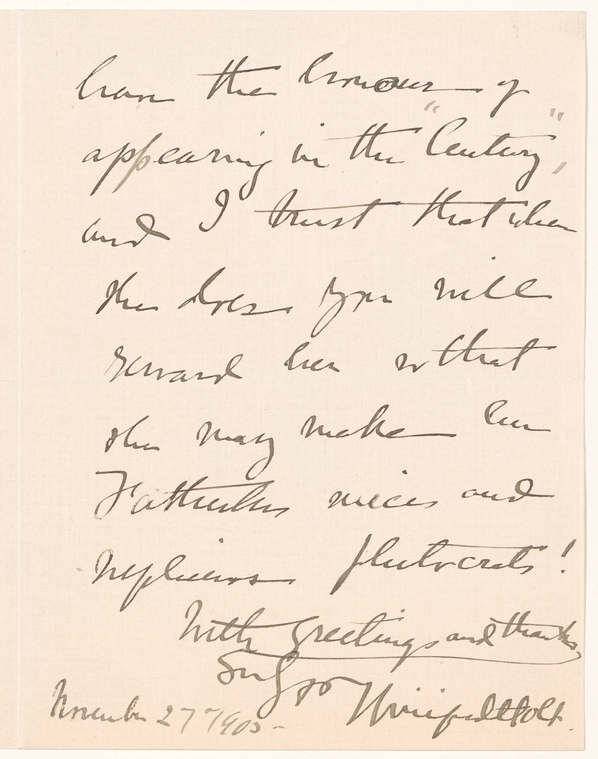 have the honour of
appearing in the "Century",
and I trust that when
she does you will
reward her so that
she may make her
Fatherless nieces and
nephews plutocrats!
With greetings and thanks
Winifred Holt.
November 27th 1905-